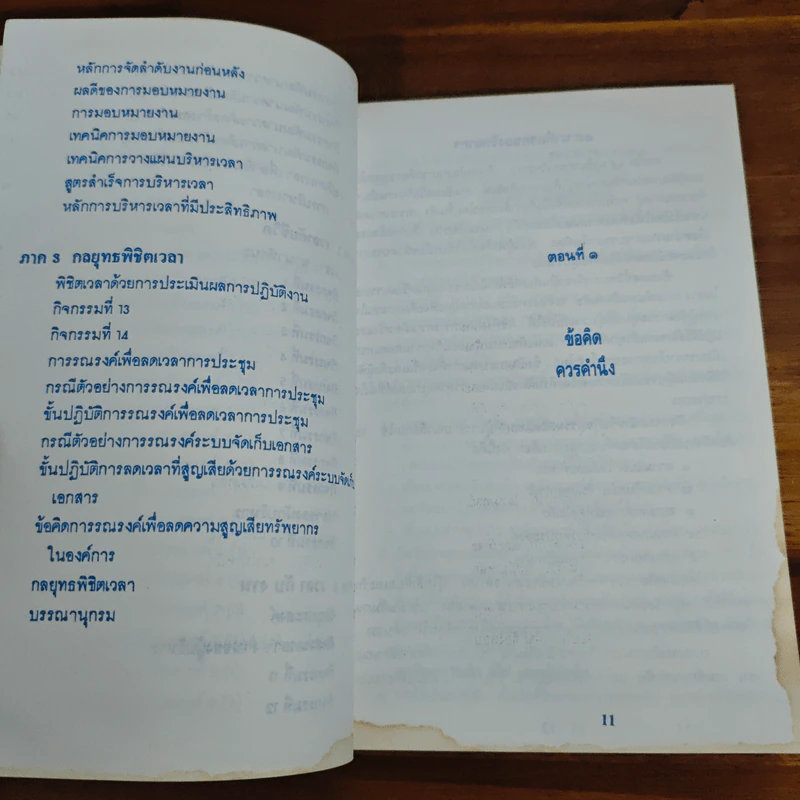 หลักการจัดลำดับงานก่อนหลัง
ผลดีของการมอบหมายงาน
การมอบหมายงาน
เทคนิคการมอบหมายงาน
เทคนิคการวางแผนบริหารเวลา
สูตรสำเร็จการบริหารเวลา
หลักการบริหารเวลาที่มีประสิทธิภาพ
ภาค 3 กลยุทธพิชิตเวลา
พิชิตเวลาด้วยการประเมินผลการปฏิบัติงาน
กิจกรรมที่ 13
กิจกรรมที่ 14
การรณรงค์เพื่อลดเวลาการประชุม
กรณีตัวอย่างการรณรงค์เพื่อลดเวลาการประชุม
ขั้นปฏิบัติการรณรงค์เพื่อลดเวลาการประชุม
กรณีตัวอย่างการรณรงค์ระบบจัดเก็บเอกสาร
ขั้นปฏิบัติการลดเวลาที่สูญเสียด้วยการรณรงค์ระบบจัดเก็บ
เอกสาร
ข้อคิดการรณรงค์เพื่อลดความสูญเสียทรัพยากร
ในองค์การ
กลยุทธพิชิตเวลา
บรรณานุกรม
ตอนที่ ๑
ข้อคิด
ควรคำนึง
11